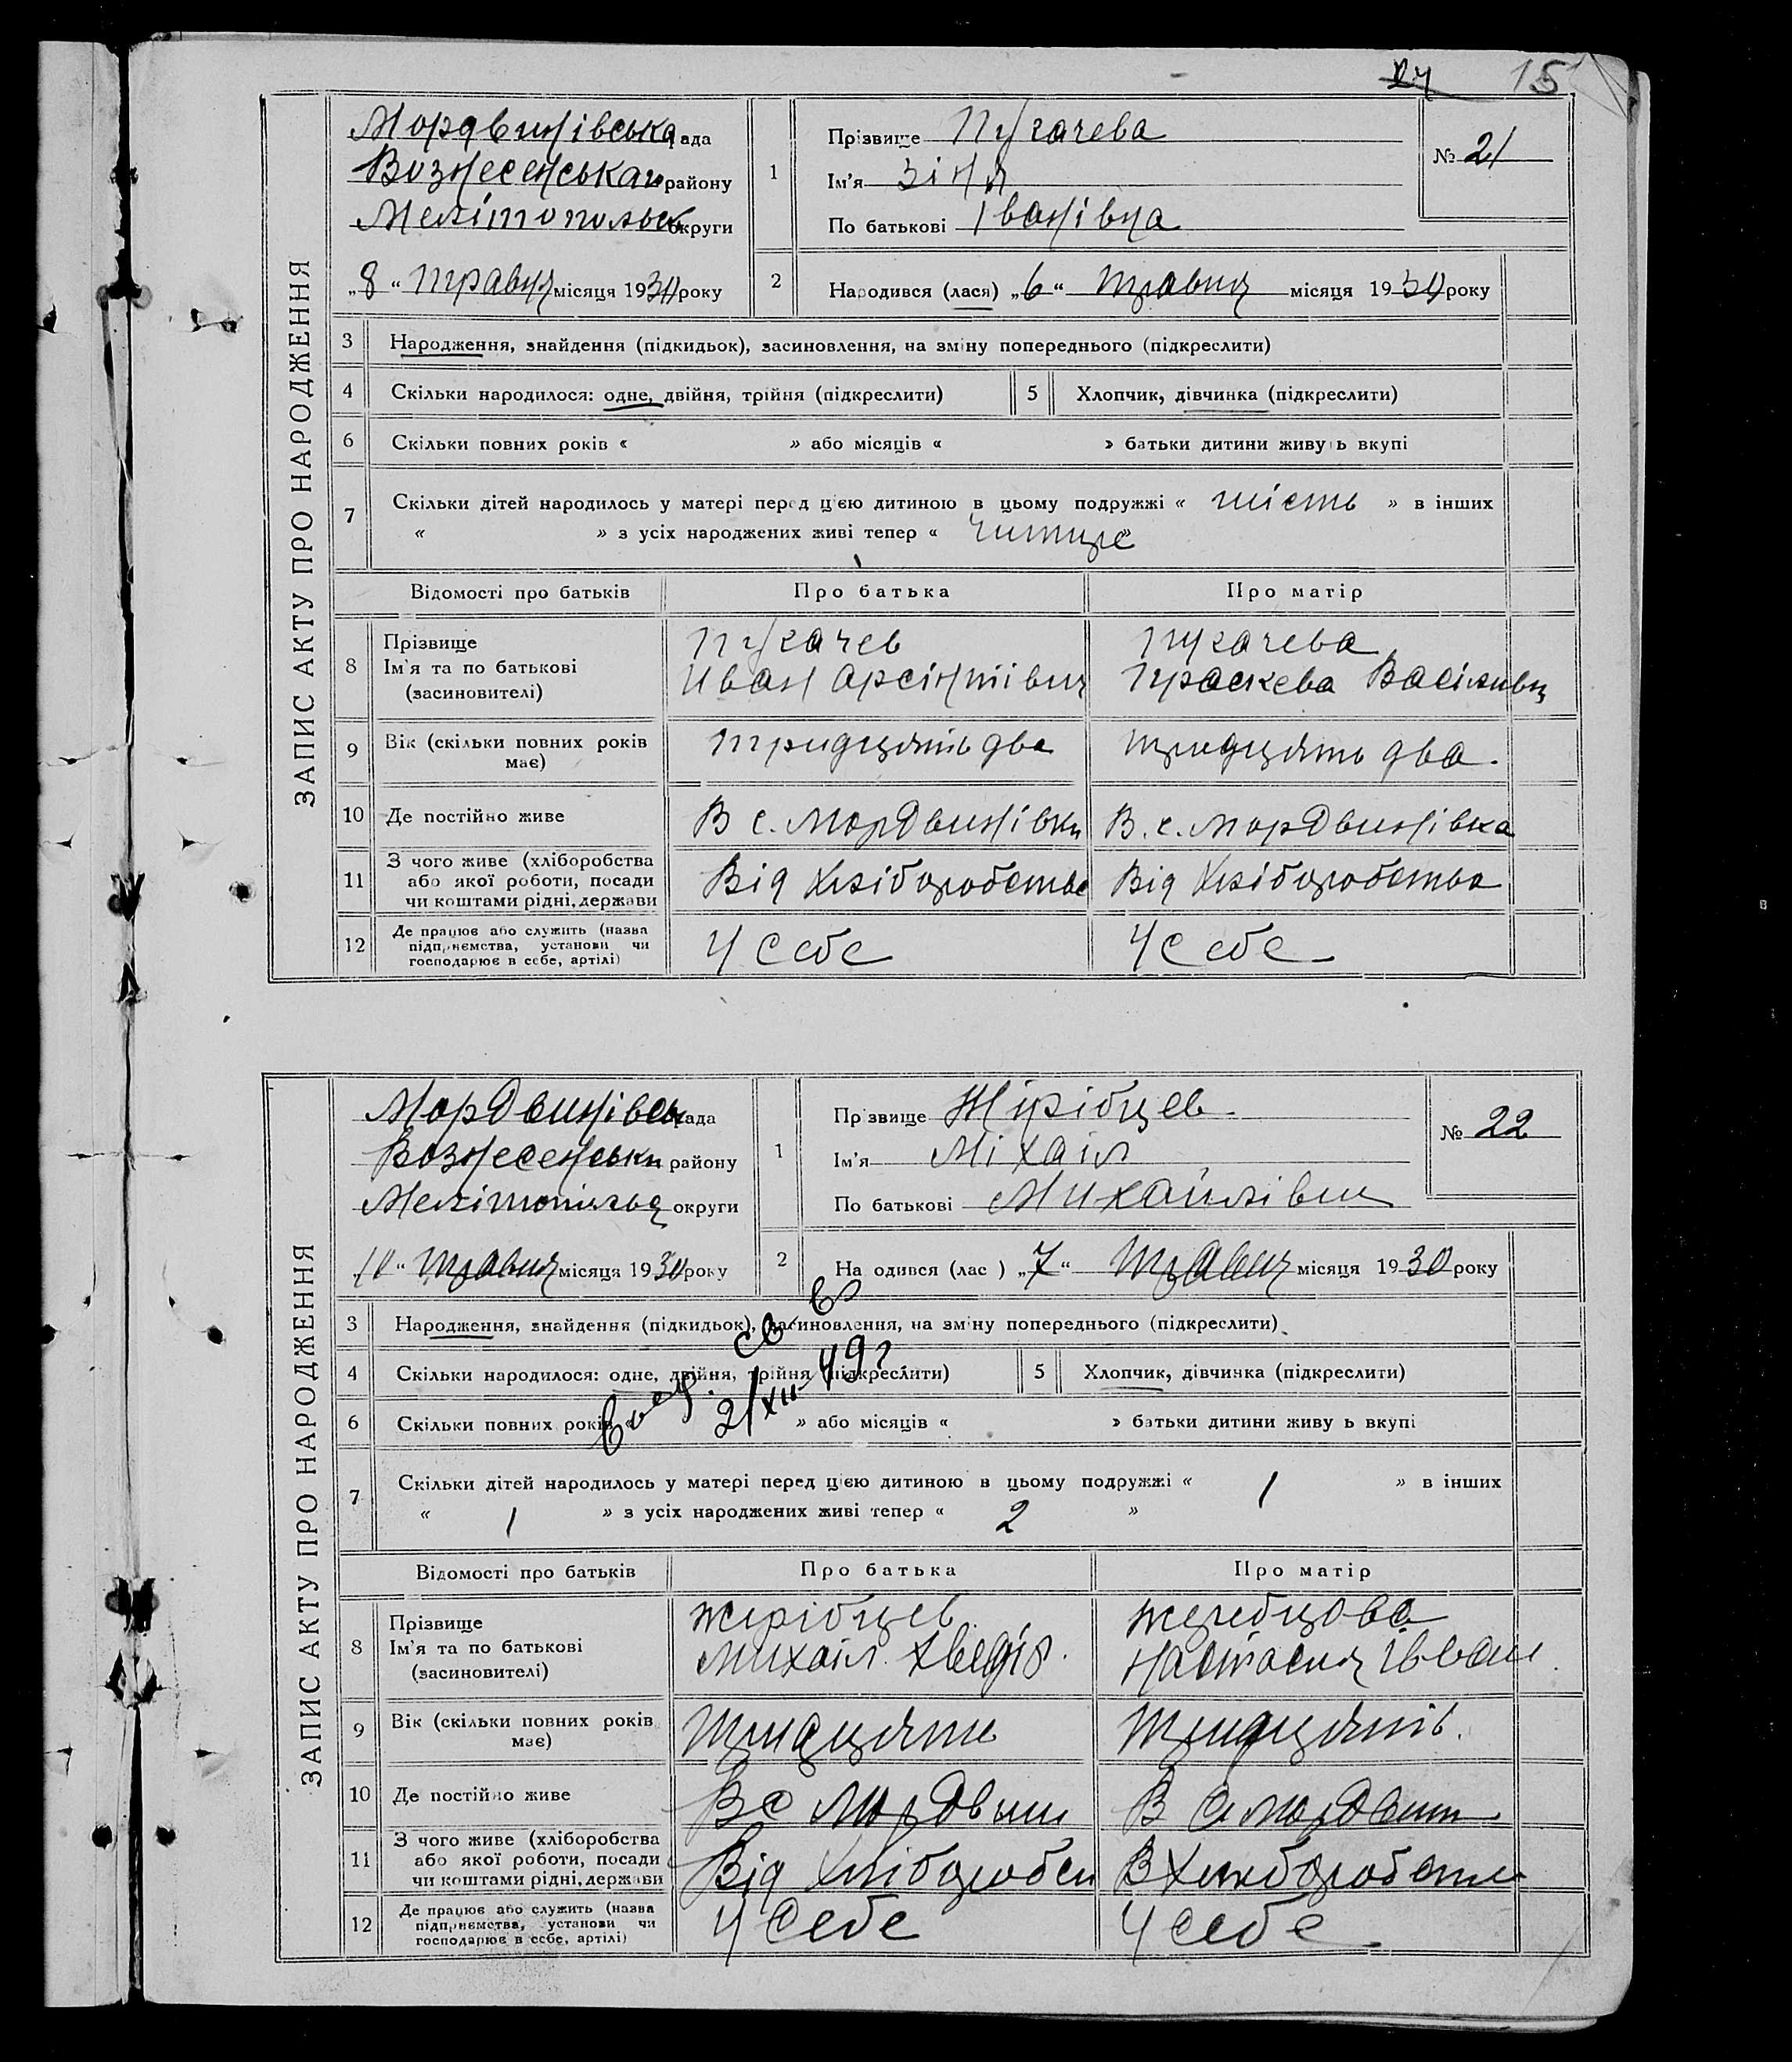 24 15
ЗАПИС АКТУ ПРО НАРОДЖЕННЯ
Мордвинівська рада
Вознесенськаго району
Мелітопольськ округи
„8“ травня місяця 1930 року
1
Прізвище Пугачева
Ім'я Зіня
По батькові Іванівна
№ 21
2 Народився (лася) „6“ травня місяця 1930 року
3 Народження, знайдення (підкидьок), засиновлення, на зміну попереднього (підкреслити)
4 Скільки народилося: одне, двійня, трійня (підкреслити) 5 Хлопчик, дівчинка (підкреслити)
6 Скільки повних років « » або місяців « » батьки дитини живуть вкупі
7 Скільки дітей народилось у матері перед цією дитиною в цьому подружжі « шість » в інших
« » з усіх народжених живі тепер « читире »
Відомості про батьків Про батька Про матір
8 Прізвище Пугачев Пугачева
Ім'я та по батькові Иван Арсінтіівич Праскева Васіливн
(засиновителі)
9 Вік (скільки повних років має) тридцять два тридцять два.
10 Де постійно живе В с. Мордвинівки В. с. Мордвинівка
11 З чого живе (хліборобства або якої роботи, посади чи коштами рідні, держави Від Хліборобства Від Хліборобства
12 Де працює або служить (назва підприємства, установи чи господарює в себе, артілі) У себе У себе
ЗАПИС АКТУ ПРО НАРОДЖЕННЯ
Мордвинівськ рада
Вознесенськи району
Мелітопільс округи
10“ травня місяця 1930 року
1
Прізвище Жирібцев.
Ім'я Міхаіл
По батькові Михайлівич
№ 22
2 На одився (лас ) „7“ Травня місяця 1930 року
3 Народження, знайдення (підкидьок), засиновлення, на зміну попереднього (підкреслити)
4 Скільки народилося: одне, двійня, трійня (підкреслити) 5 Хлопчик, дівчинка (підкреслити)
6 Скільки повних років « » або місяців « » батьки дитини живу ь вкупі
св-во
2/XII-49 г
7 Скільки дітей народилось у матері перед цією дитиною в цьому подружжі « 1 » в інших
« 1 » з усіх народжених живі тепер « 2 »
Відомості про батьків Про батька Про матір
8 Прізвище жирібцев Жеребцова
Ім'я та по батькові Михаіл. Хведів. Настасия Івван
(засиновителі)
9 Вік (скільки повних років має) Тридцять Тридцять.
10 Де постійно живе В с Мордвин В с Мордвин
11 З чого живе (хліборобства або якої роботи, посади чи коштами рідні, держави Від Хліборобси В Хлиборобства
12 Де працює або служить (назва підприємства, установи чи господарює в себе, артілі) У себе У себе